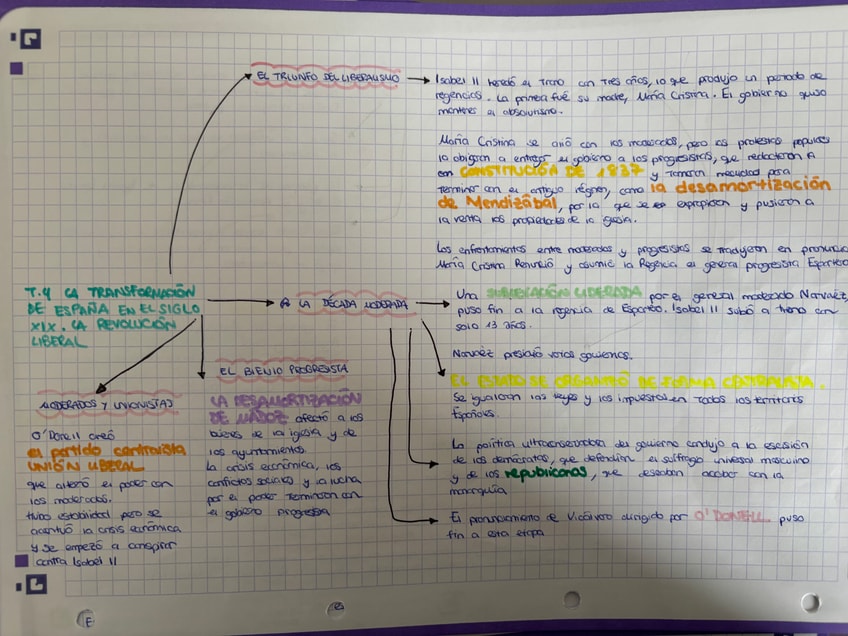 EL TRIUNFO DEL LIBERALISMO
Isabel II heredó el trono con tres años, lo que produjo un periodo de
regencias. La primera fué su madre, María Cristina. El gobierno quiso
mantener el absolutismo.
María Cristina se alió con los moderados, pero las protestas populares
la obligaron a entregar el gobierno a los progresistas, que redactaron la
CONSTITUCIÓN DE 1837 y tomaron medidas para
terminar con el antiguo régimen, como la desamortización
de Mendizábal, por la que se expropiaron y pusieron a
la venta las propiedades de la iglesia.
Los enfrentamientos entre moderados y progresistas se tradujeron en
María Cristina Renunció y asumió la Regencia el general progresista Espartero
T.4 LA TRANSFORMACIÓN
DE ESPAÑA EN EL SIGLO
XIX. LA REVOLUCIÓN
LIBERAL
LA DÉCADA MODERADA
Una SUBLEVACIÓN LIDERADA por el general moderado Narváez,
puso fin a la regencia de Espartero. Isabel II subió a trono con
solo 13 años.
Narváez presidió varios gobiernos.
EL ESTADO SE ORGANIZÓ DE FORMA CENTRALISTA.
Se igualaron las leyes y los impuestos en todos los territorios
Españoles.
La política ultraconservadora del gobierno condujo a la escisión
de los demócratas, que defendían el sufragio universal masculino
y de los republicanos, que deseaban acabar con la
monarquía
El pronunciamiento de Vicálvaro dirigido por O'DONELL puso
fin a esta etapa
EL BIENIO PROGRESISTA
LA DESAMORTIZACIÓN
DE MADOZ afectó a los
bienes de la iglesia y de
los ayuntamientos.
La crisis económica, los
conflictos sociales y la lucha
por el poder terminaron con
el gobierno progresista
MODERADOS Y UNIONISTAS
O'Donell creó
el partido centralista
UNIÓN LIBERAL
que alternó el poder con
los moderados.
Hubo estabilidad pero se
acentuó la crisis económica
y se empezó a conspirar
contra Isabel II